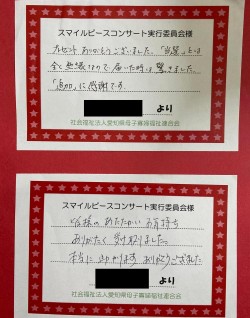 スマイルピースコンサート実行委員会様
プレゼント ありがとうございました。「当選」とは
全く無縁なので、届いた時は驚きました。
「追加」に感謝です。
より
社会福祉法人愛知県母子寡婦福祉連合会
スマイルピースコンサート実行委員会様
皆様のあたたかいお気持ち
ありがたく受け取りました。
本当に助かります ありがとうございました
より
社会福祉法人愛知県母子寡婦福祉連合会